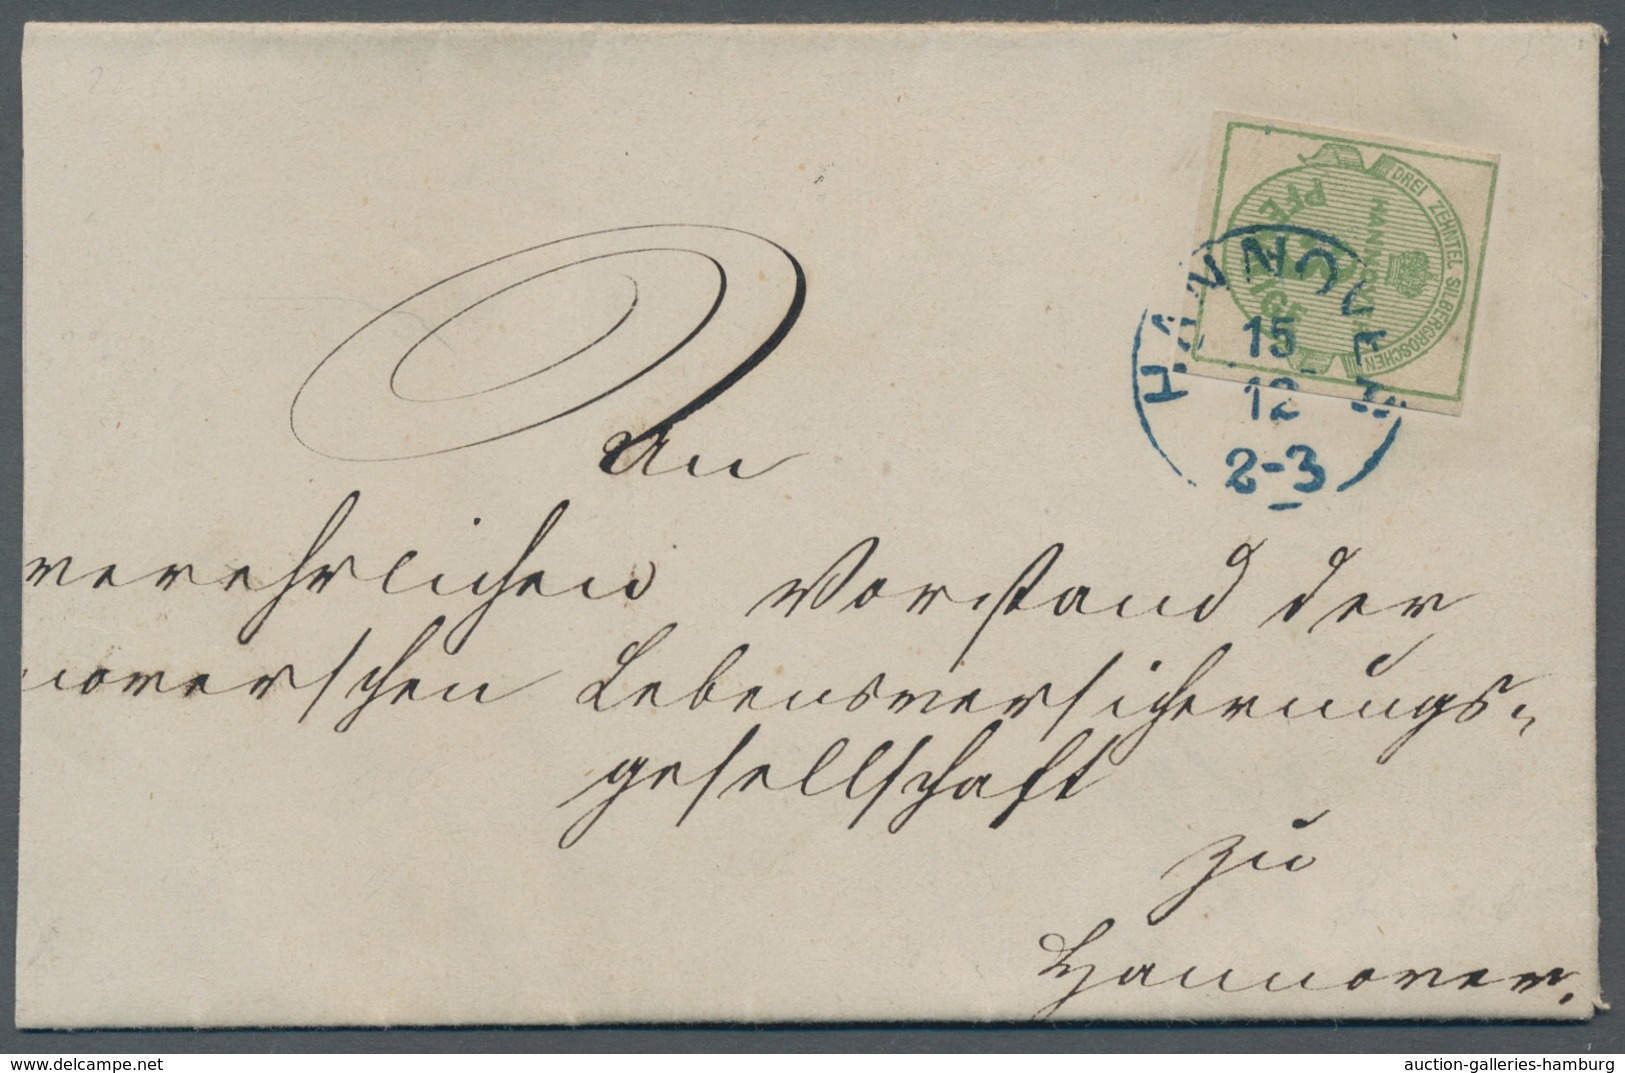 DREI ZEHNTEL SILBERGROSCHEN
HANNOVER
HANNOVER
15
12
2-3
An
verehrlichen Vorstand der
noverschen Lebensversicherungs-
gesellschaft
zu
Hannover.
www.delcampe.net
auction-galleries-hamburg